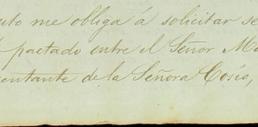 me obliga á solicitar se
pactado entre el Señor Ma
entante de la Señora Cosés,